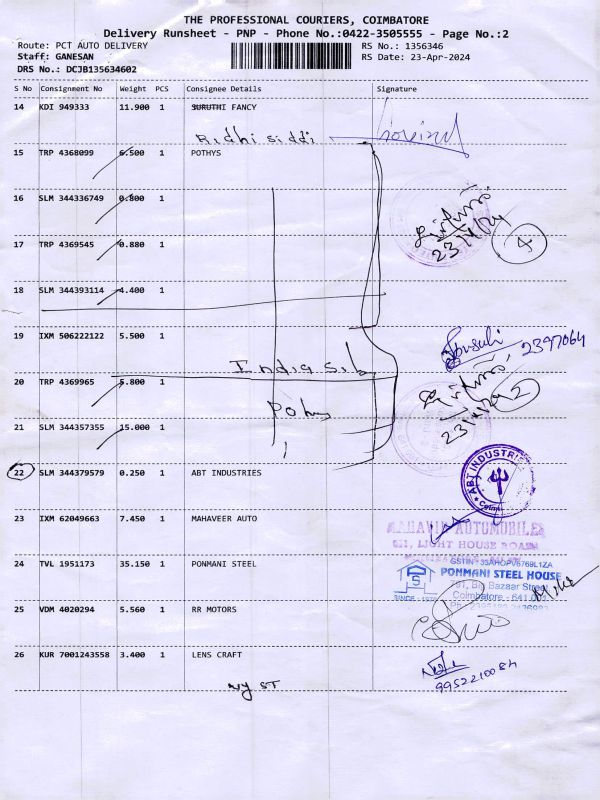 THE PROFESSIONAL COURIERS, COIMBATORE
Delivery Runsheet - PNP - Phone No.:0422-3505555 - Page No.:2
Route: PCT AUTO DELIVERY RS No.: 1356346
Staff: GANESAN RS Date: 23-Apr-2024
DRS No.: DCJB135634602
S No Consignment No Weight PCS Consignee Details Signature
14 KDI 949333 11.900 1 SURUTHI FANCY
Ridhi siddi
15 TRP 4368099 6.500 1 POTHYS
16 SLM 344336749 0.800 1
23/4/24 4
17 TRP 4369545 0.880 1
18 SLM 344393114 4.400 1
19 IXM 506222122 5.500 1
2397064
India Silk
20 TRP 4369965 5.800 1
2
Pothy
23/4/24
21 SLM 344357355 15.000 1
22 SLM 344379579 0.250 1 ABT INDUSTRIES
ABT INDUSTRIES
23 IXM 62049663 7.450 1 MAHAVEER AUTO
MAHAVIR AUTOMOBILES
LIGHT HOUSE ROAD
24 TVL 1951173 35.150 1 PONMANI STEEL
PONMANI STEEL HOUSE
Big Bazaar Street
Coimbatore - 641 001
25 VDM 4020294 5.560 1 RR MOTORS
26 KUR 7001243558 3.400 1 LENS CRAFT
9952210084
NY ST